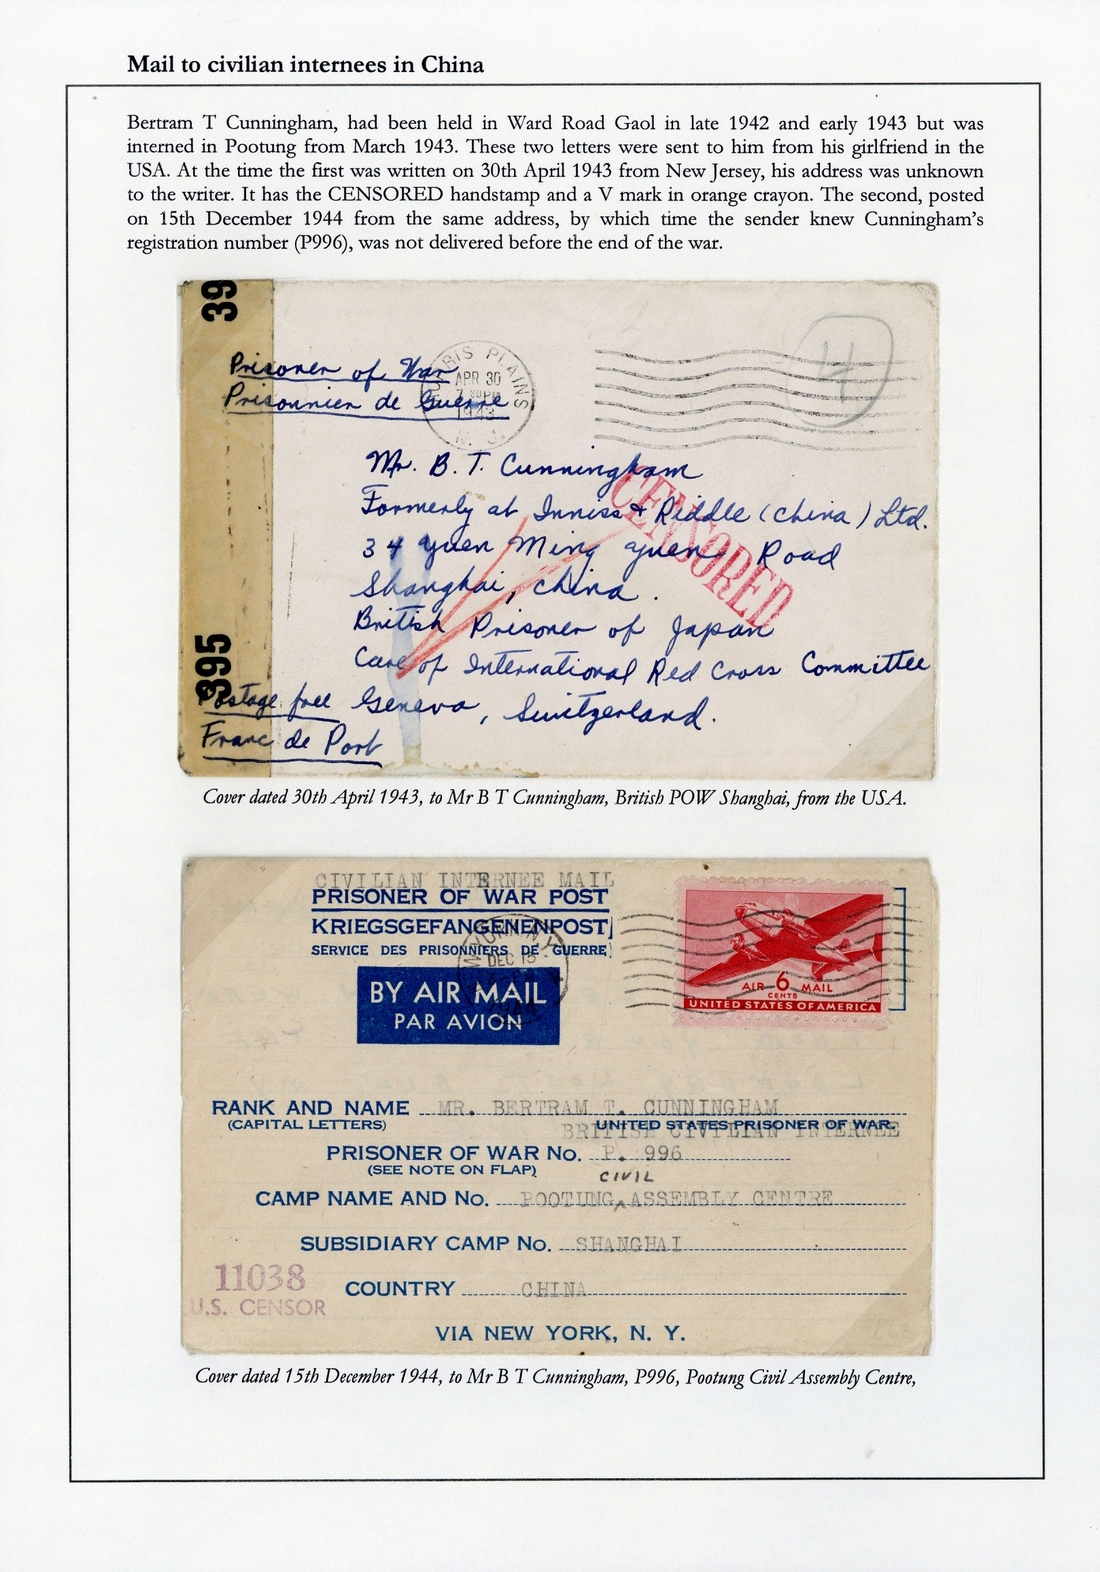 Mail to civilian internees in China
Bertram T Cunningham, had been held in Ward Road Gaol in late 1942 and early 1943 but was
interned in Pootung from March 1943. These two letters were sent to him from his girlfriend in the
USA. At the time the first was written on 30th April 1943 from New Jersey, his address was unknown
to the writer. It has the CENSORED handstamp and a V mark in orange crayon. The second, posted
on 15th December 1944 from the same address, by which time the sender knew Cunningham's
registration number (P996), was not delivered before the end of the war.
39
4
Prisoner of War
Prisonnier de Guerre
PLAINS
APR 30
1943
N. J.
Mr. B. T. Cunningham
Formerly at Inniss & Riddle (China) Ltd.
34 Yuen Ming Yuen Road
Shanghai, China.
British Prisoner of Japan
Care of International Red Cross Committee
Geneva, Switzerland.
CENSORED
395
Postage free
Franc de Port
Cover dated 30th April 1943, to Mr B T Cunningham, British POW Shanghai, from the USA.
CIVILIAN INTERNEE MAIL
PRISONER OF WAR POST
KRIEGSGEFANGENENPOST
SERVICE DES PRISONNIERS DE GUERRE
DEC 15
BY AIR MAIL
PAR AVION
AIR 6 MAIL
CENTS
UNITED STATES OF AMERICA
RANK AND NAME MR. BERTRAM T. CUNNINGHAM
(CAPITAL LETTERS) UNITED STATES PRISONER OF WAR.
BRITISH CIVILIAN INTERNEE
PRISONER OF WAR No. P. 996
(SEE NOTE ON FLAP)
CIVIL
CAMP NAME AND No. POOTUNG ASSEMBLY CENTRE
SUBSIDIARY CAMP No. SHANGHAI
COUNTRY CHINA
11038
U.S. CENSOR
VIA NEW YORK, N. Y.
Cover dated 15th December 1944, to Mr B T Cunningham, P996, Pootung Civil Assembly Centre,